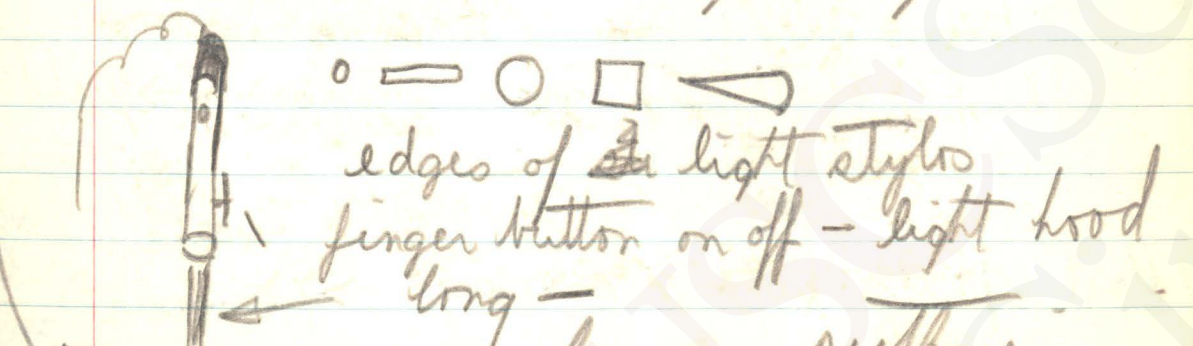 edges of light stylos
finger button on off – light hood
long –